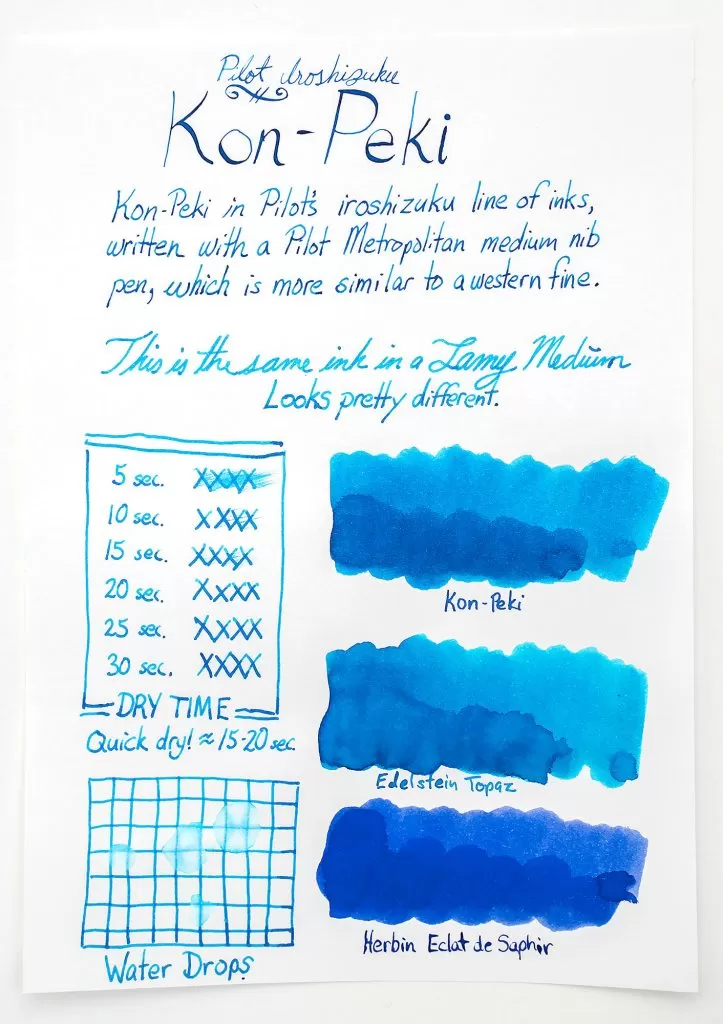 Pilot Iroshizuku
Kon-Peki
Kon-Peki in Pilot's iroshizuku line of inks,
written with a Pilot Metropolitan medium nib
pen, which is more similar to a western fine.
This is the same ink in a Lamy Medium
Looks pretty different.
5 sec. XXXX
10 sec. XXXX
15 sec. XXXX
20 sec. XXXX
25 sec. XXXX
30 sec. XXXX
DRY TIME
Quick dry! ≈ 15-20 sec.
Water Drops
Kon-Peki
Edelstein Topaz
Herbin Eclat de Saphir